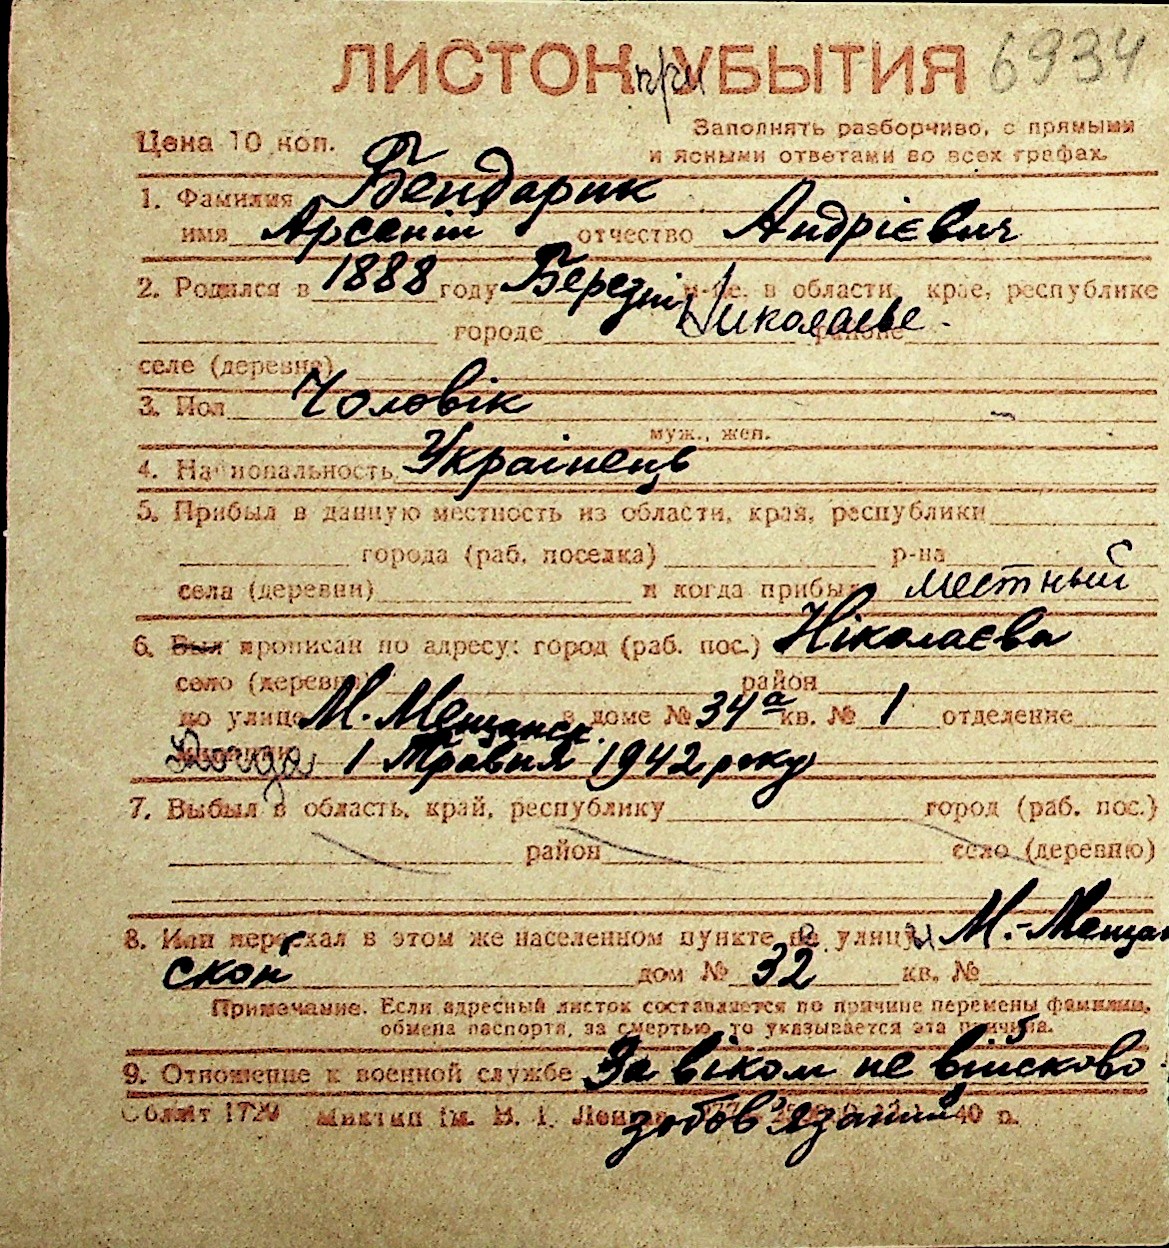 ЛИСТОК при УБЫТИЯ 6934
Цена 10 коп.
Заполнять разборчиво, с прямыми
и ясными ответами во всех графах.
1. Фамилия Бендарик
имя Арсеній отчество Андрієвич
2. Родился в 1888 году Березні н-ре, в области, крае, республике
городе Николаеве районе
селе (деревне)
3. Пол Чоловік
муж., жен.
4. Национальность Украінець
5. Прибыл в данную местность из области, края, республики
города (раб. поселка) р-на
села (деревни) и когда прибыл местный
6. Был прописан по адресу: город (раб. пос.) Ніколаєва
село (деревня) район
по улице М. Мещанск. в доме № 34а кв. № 1 отделение
Когда 1 Травня 1942 року
7. Выбыл в область, край, республику город (раб. пос.)
район село (деревню)
8. Или переехал в этом же населенном пункте на улицу М.-Мещан
ской дом № 32 кв. №
Примечание. Если адресный листок составляется по причине перемены фамилии,
обмена паспорта, за смертью, то указывается эта причина.
9. Отношение к военной службе За віком не військово
зобов'язаний
Облліт 1729 Миктип ім. В. І. Леніна 40 р.